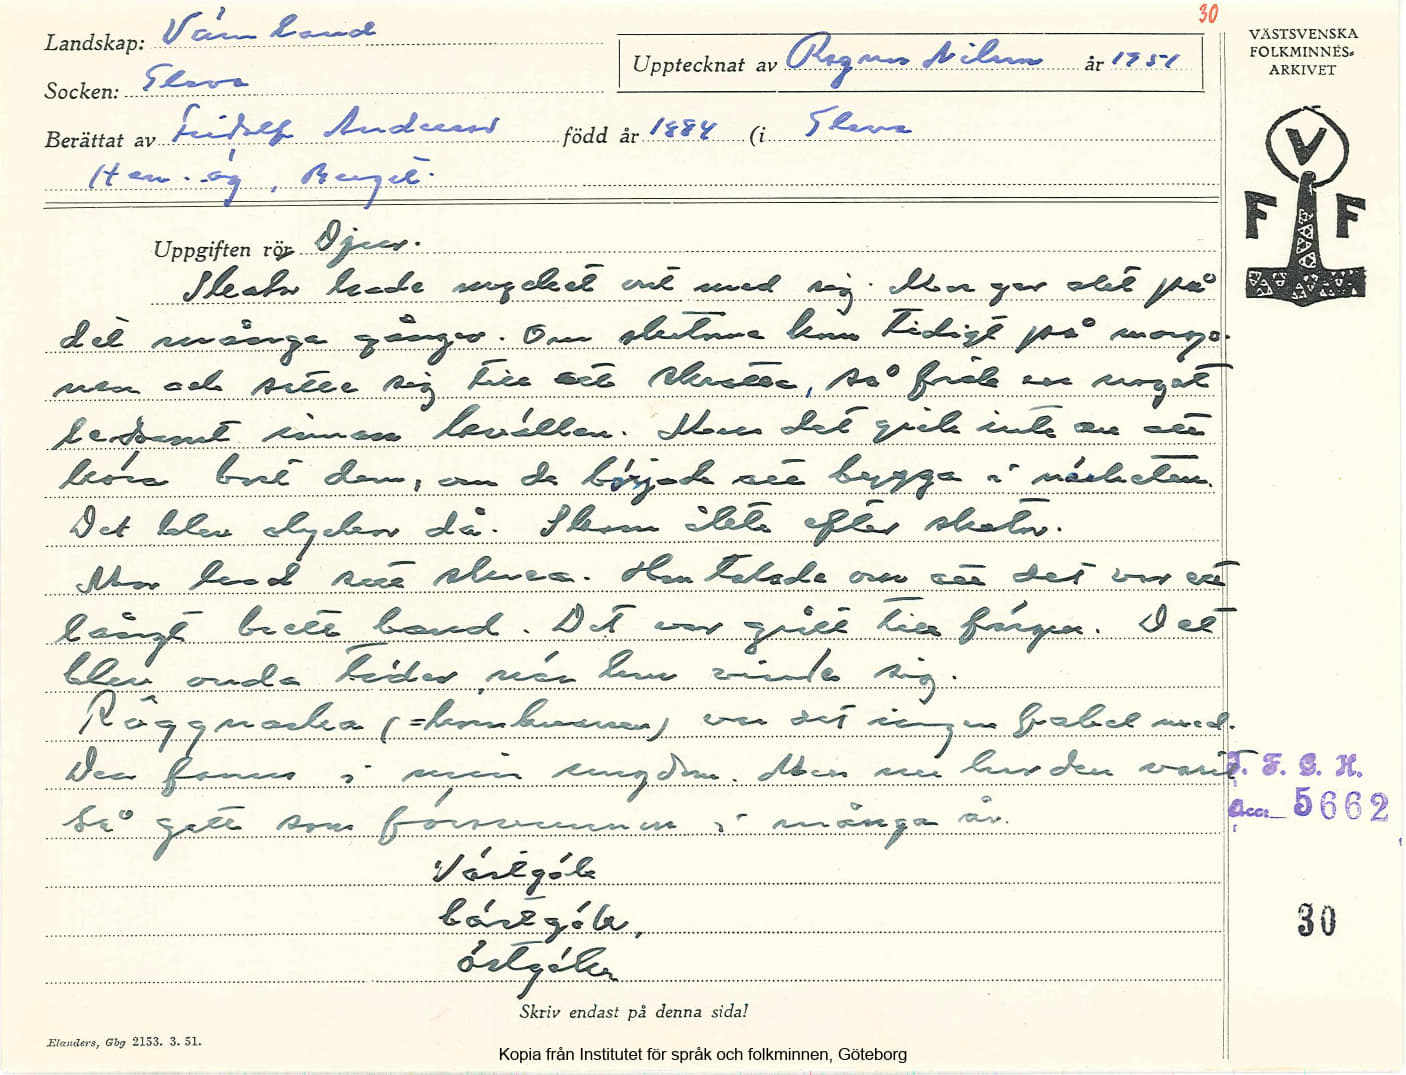 30
Landskap: Värmland
Upptecknat av Ragnar Nilsson år 1951
VÄSTSVENSKA
FOLKMINNES-
ARKIVET
Socken: Gleva
Berättat av Fridolf Andersson född år 1884 (i Gleva
Hem.äg, Berget.
V
F F
Uppgiften rör Djur.
Skator hade mycket ont med sig. Man gav akt på
det många gånger. Om skatorna kom tidigt på morgo-
nen och satte sig till att skratta, så fick en något
ledsamt innan kvällen. Men det gick inte an att
köra bort dem, om de började att bygga i närheten.
Det blev olyckor då. Skam åtete efter skator.
Mor had sett . Hon talade om att det var ett
långt brett band. Det var grått till färgen. Det
blev onda tider när hon visade sig.
Råggnarka (=kornknarren) var det ingen fabel med.
Den fanns i min ungdom. Men nu har den varit
så gott som försvunnen i många år.
V. F. G. H.
Acc. 5662
Västgök
bästgök,
östgök
30
Skriv endast på denna sida!
Elanders, Gbg 2153. 3. 51.
Kopia från Institutet för språk och folkminnen, Göteborg